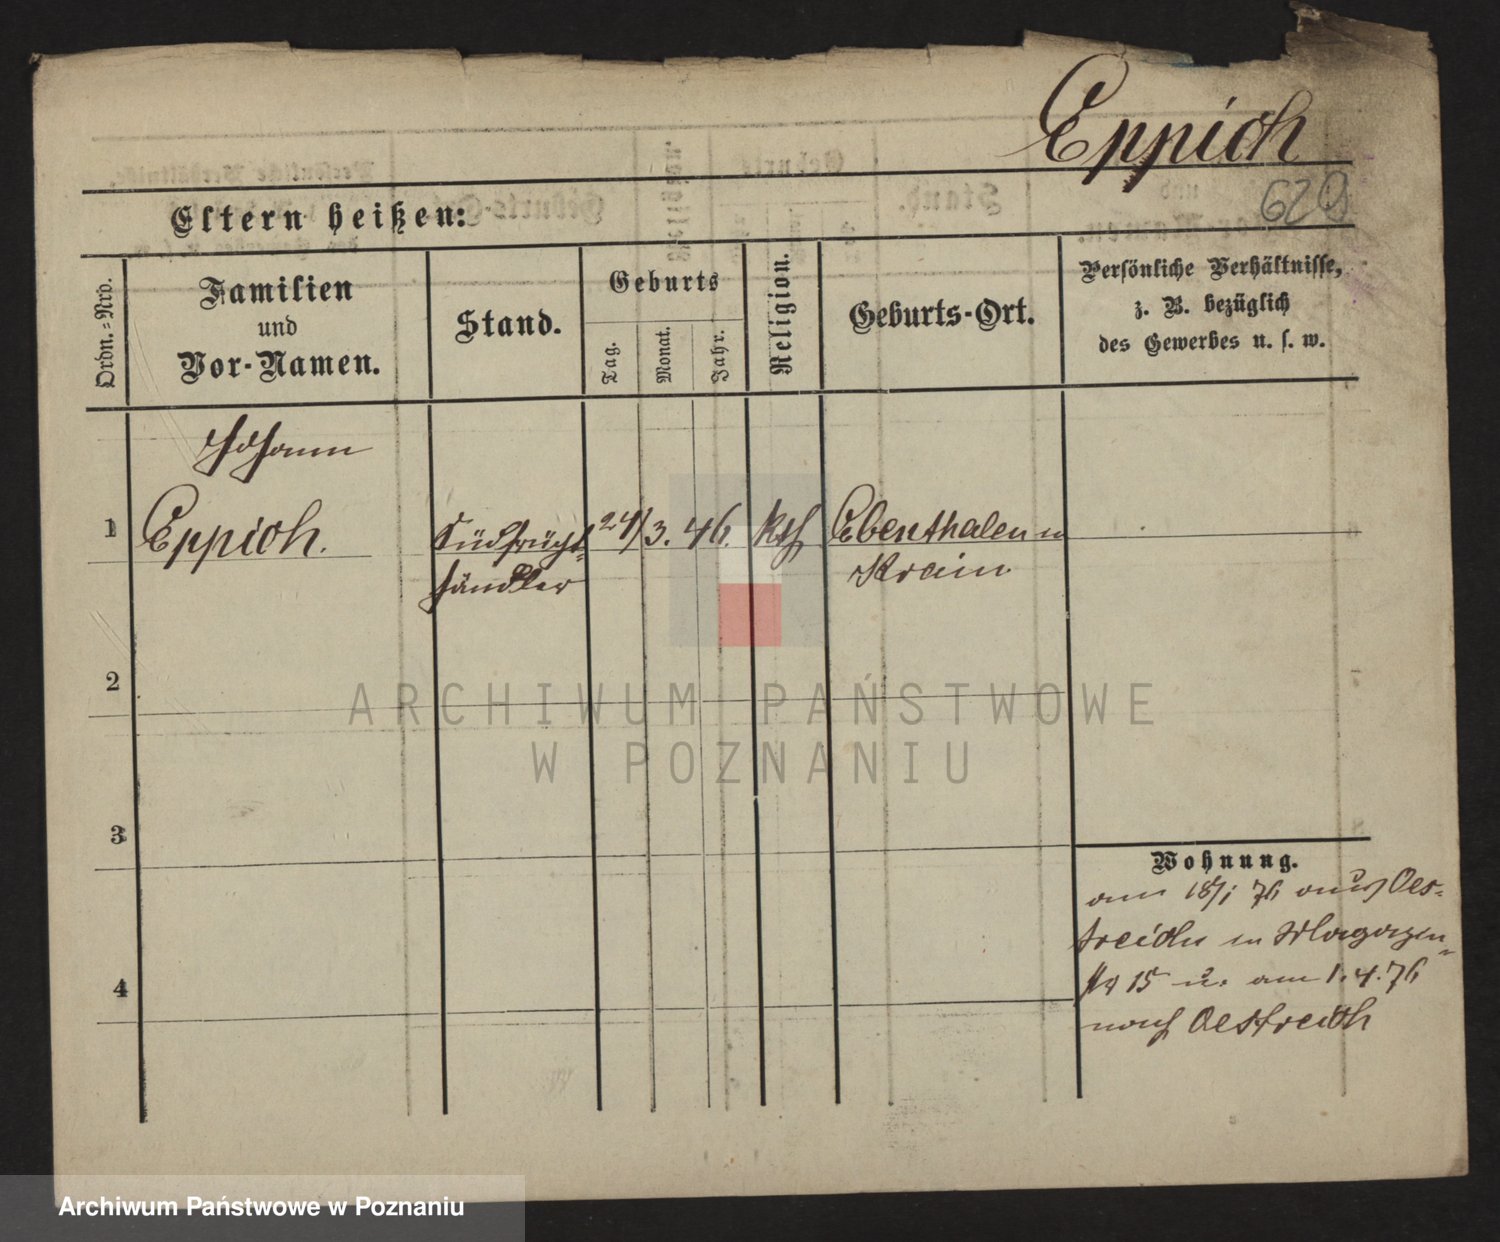 Eppich
620
Eltern heißen:
Ordn.-Nro.
Familien
und
Vor-Namen.
Stand.
Geburts
Tag.
Monat.
Jahr.
Religion.
Geburts-Ort.
Persönliche Verhältnisse,
z. B. bezüglich
des Gewerbes u. s. w.
Johann
1
Eppich.
Südfrücht-
händler
24/
3.
46.
kth
Ebenthalen in
Krain
2
ARCHIWUM PAŃSTWOWE
W POZNANIU
3
Wohnung.
am 18/1 76 aus Oes-
treich in Magazin-
str 15 u. am 1.4.76
nach Oestreich
4
Archiwum Państwowe w Poznaniu